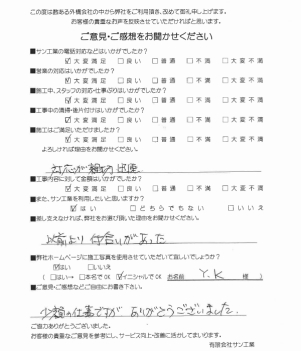 この度は数ある外構会社の中から弊社をご利用頂き、改めて御礼申し上げます。
お客様の貴重なお声を反映させていただければと思います。
ご意見・ご感想をお聞かせください
■サン工業の電話対応などはいかがでしたか?
☑大変満足 □良い □普通 □不満 □大変不満
■営業の対応はいかがでしたか?
☑大変満足 □良い □普通 □不満 □大変不満
■施工中、スタッフの対応・仕事ぶりはいかがでしたか?
☑大変満足 □良い □普通 □不満 □大変不満
■工事中の清掃・後片付けはいかがでしたか?
☑大変満足 □良い □普通 □不満 □大変不満
■施工はご満足いただけましたか?
☑大変満足 □良い □普通 □不満 □大変不満
よろしければ理由をお聞かせください。
対応が
■工事内容に対して金額はいかがでしたか?
☑大変満足 □良い □普通 □不満 □大変不満
■また、サン工業を利用したいと思いますか?
☑はい □どちらでもない □いいえ
■差し支えなければ、弊社をお選び頂いた理由をお聞かせください
以前より付合いがあった
■弊社ホームページに施工写真を使用させていただいて宜しいでしょうか?
☑はい □いいえ
(はい → □本名でOK ☑イニシャルでOK お名前 Y.K 様)
■ご意見・ご感想などご自由にお書き下さい。
少額の仕事ですが ありがとうございました.
ご協力ありがとうございました。
お客様の貴重なご意見を参考にし、サービス向上・改善に活かしてまいります。
有限会社サン工業